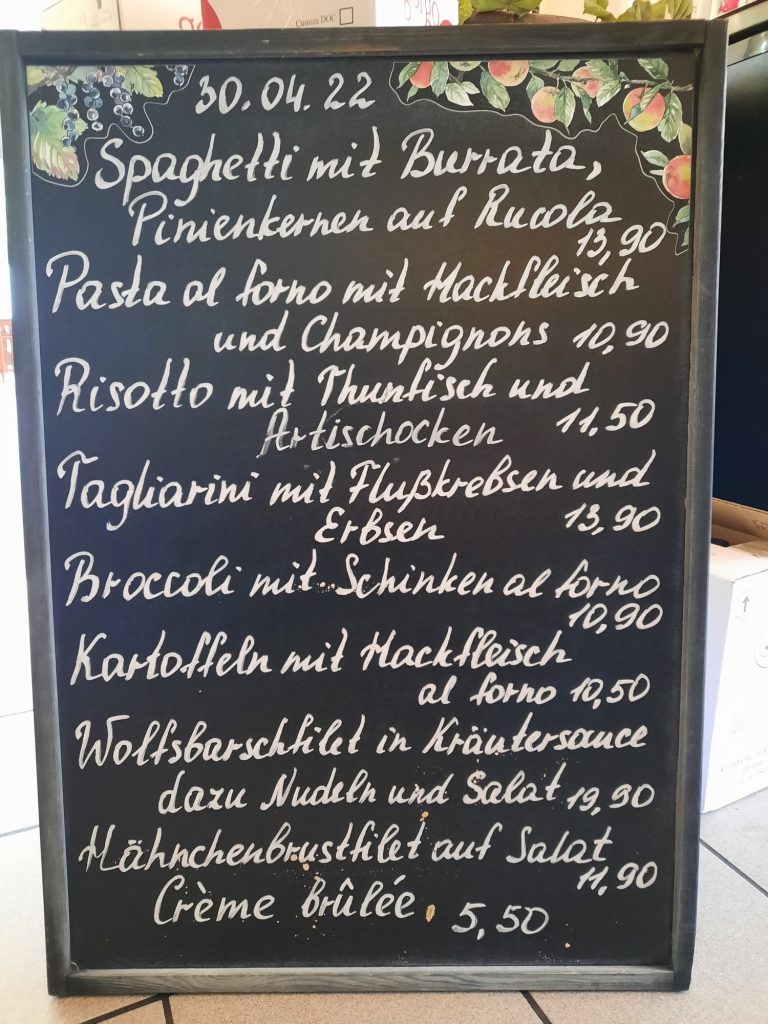 Custoza DOC
30.04.22
Spaghetti mit Burrata,
Pinienkernen auf Rucola
13,90
Pasta al forno mit Hackfleisch
und Champignons 10,90
Risotto mit Thunfisch und
Artischocken 11,50
Tagliarini mit Flußkrebsen und
Erbsen 13,90
Broccoli mit Schinken al forno
10,90
Kartoffeln mit Hackfleisch
al forno 10,50
Wolfsbarschfilet in Kräutersauce
dazu Nudeln und Salat 19,90
Hähnchenbrustfilet auf Salat
11,90
Crème Brûlée 5,50